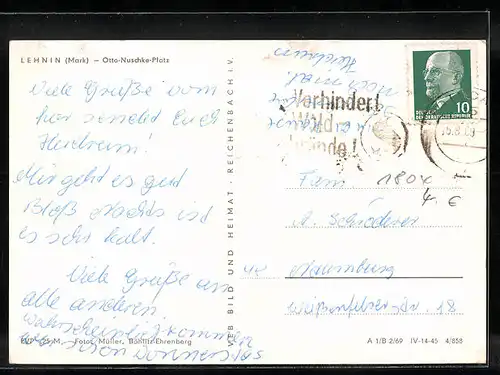 LEHNIN (Mark) — Otto-Nuschke-Platz
Viele Grüße vom
hier sendet Euch
Mir geht es gut
Bloß nachts ist
es sehr kalt.
Viele Grüße an
alle anderen.
Wahrscheinlich komme
schon Donnerstag
Foto: Müller, Böhlitz-Ehrenberg
VEB BILD UND HEIMAT · REICHENBACH I. V.
noch mal
Verhindert
Wald-
brände!
DEUTSCHE
DEMOKRATISCHE REPUBLIK
10
Fam 1804
4. €
A. Schröderer
48 Naumburg
Weißenfelser-Str. 18
A 1/B 2/69 IV-14-45 4/858